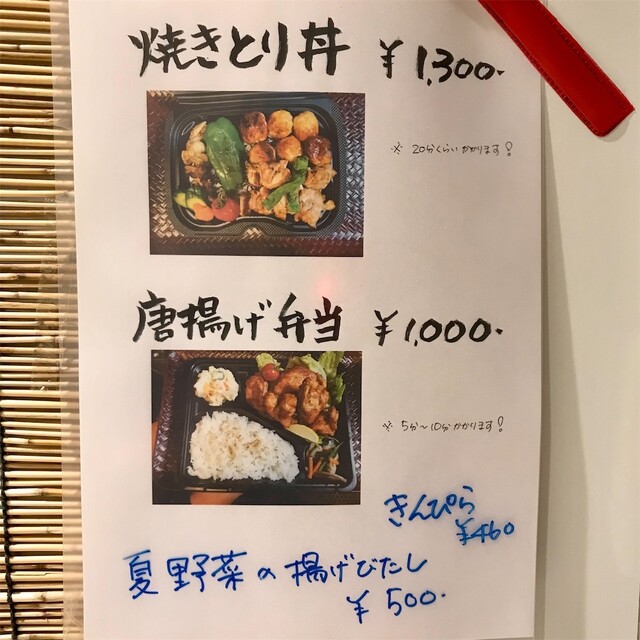 焼きとり丼 ¥1,300.
※ 20分くらいかかります!
唐揚げ弁当 ¥1,000.
※ 5分〜10分かかります!
きんぴら
¥460
夏野菜の揚げびたし
¥500.